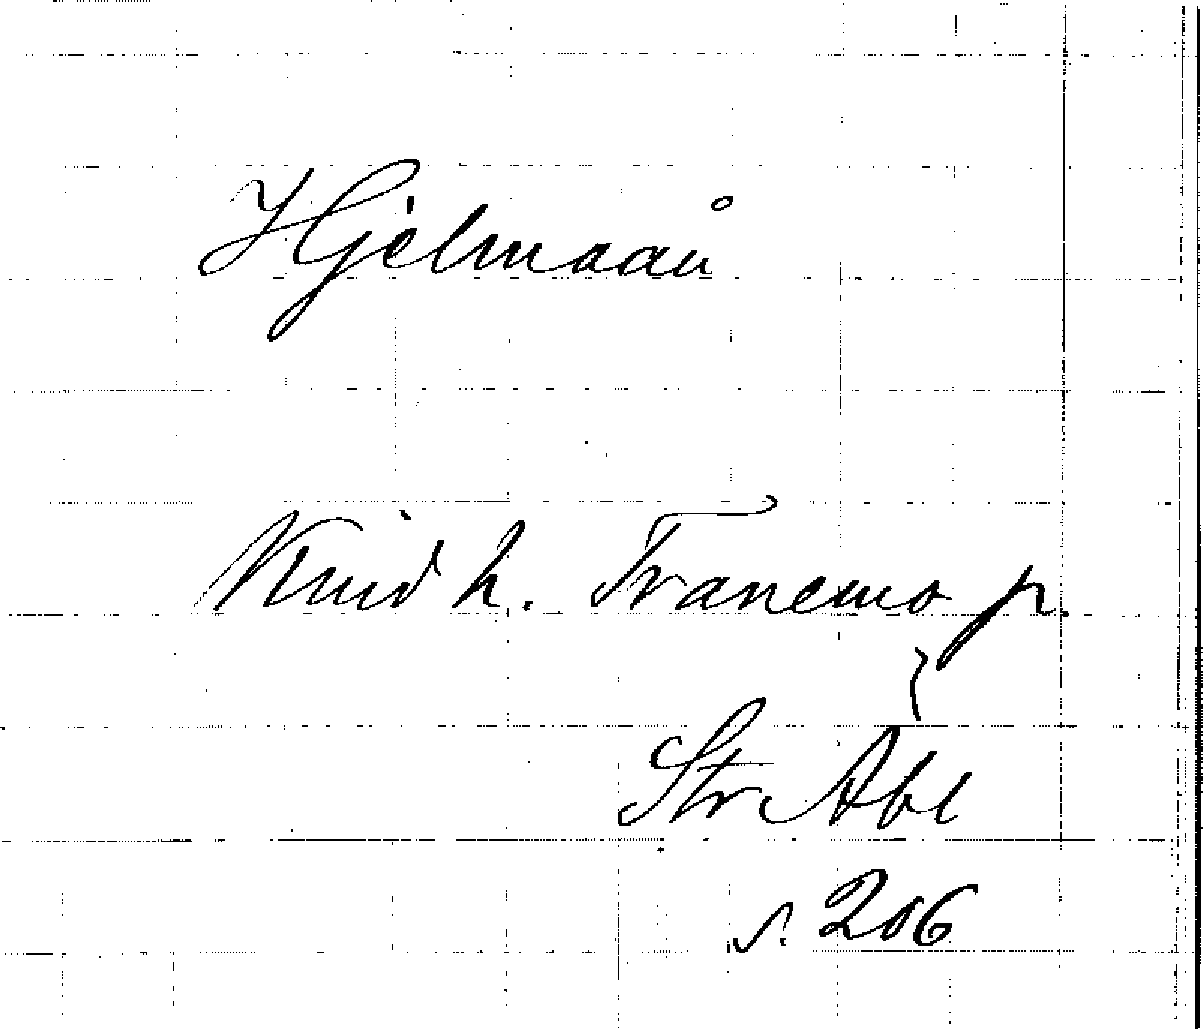 Hjelmaån
Kind h. Tranemo p.
Str Abl
s. 206